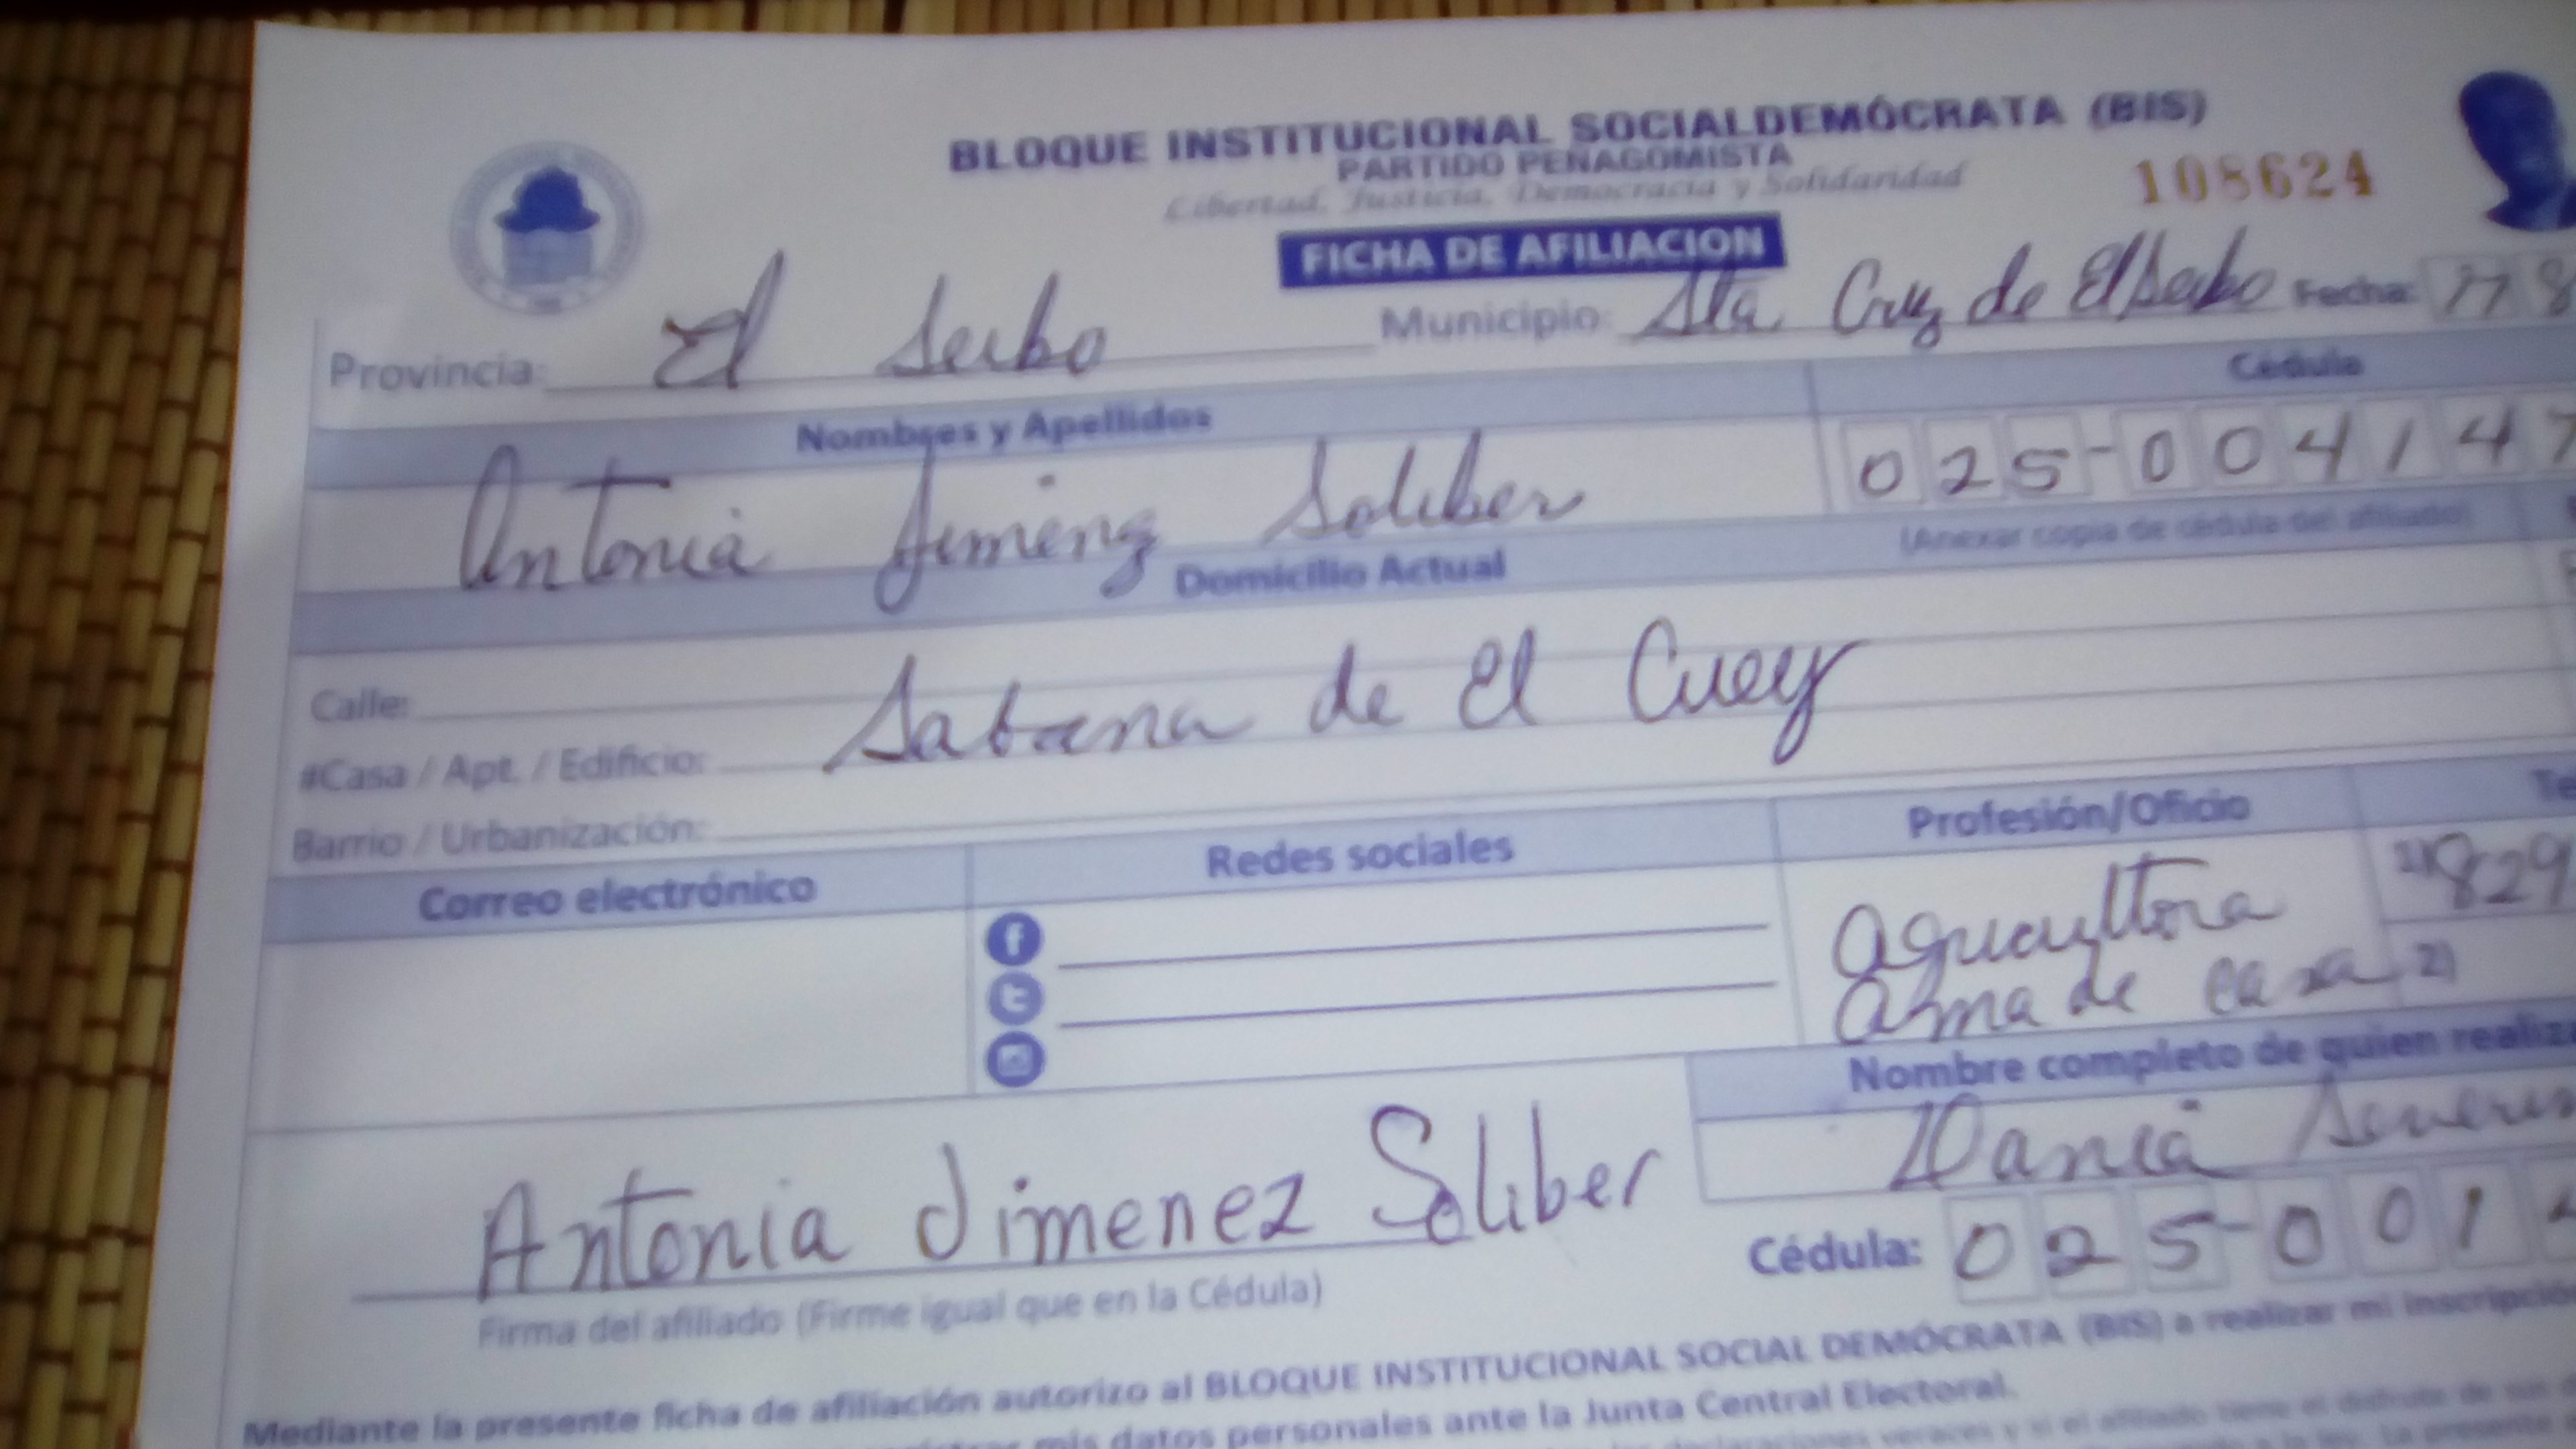 BLOQUE INSTITUCIONAL SOCIALDEMÓCRATA (BIS)
PARTIDO PEÑAGOMISTA
Libertad, Justicia, Democracia y Solidaridad
108624
FICHA DE AFILIACION
Provincia: El Seibo Municipio: Sta. Cruz de El Seibo Fecha:
Nombres y Apellidos Cédula
Antonia Jimenz Soliber 025-004147
(Anexar copia de cédula del afiliado)
Domicilio Actual
Calle:
#Casa / Apt. / Edificio: Sabana de El Cuey
Barrio / Urbanización:
Correo electrónico Redes sociales Profesión/Oficio Te
agricultora 1) 829
ama de casa 2)
Nombre completo de quien realiza
Dania
Antonia Jimenez Soliber
Cédula: 025-001
Firma del afiliado (Firme igual que en la Cédula)
Mediante la presente ficha de afiliación autorizo al BLOQUE INSTITUCIONAL SOCIAL DEMÓCRATA (BIS) a realizar mi inscripció
mis datos personales ante la Junta Central Electoral.
declaraciones veraces y si el afiliado tiene el disfrute de sus